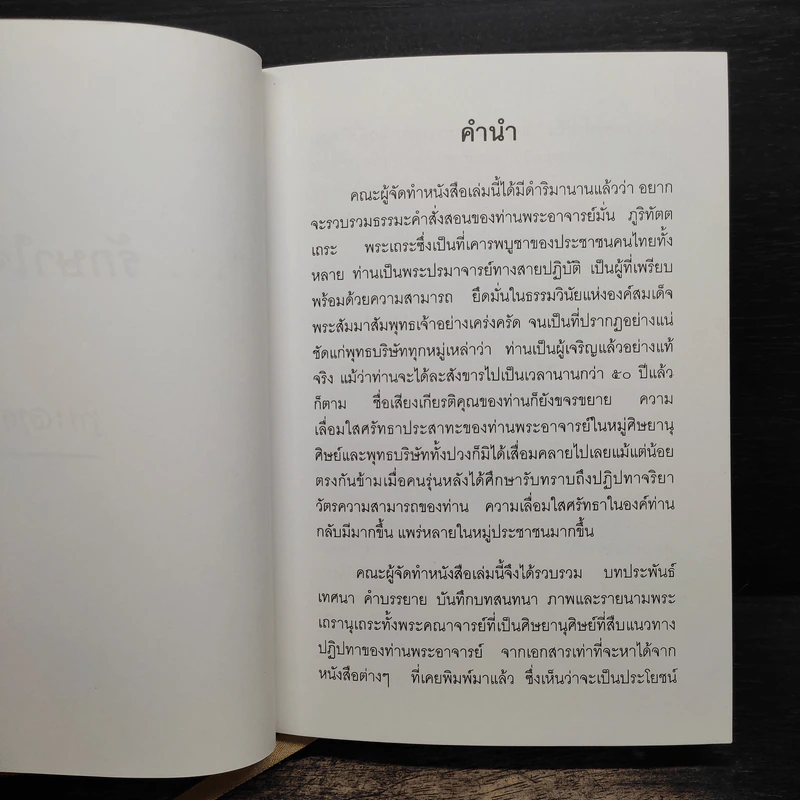 คำนำ
คณะผู้จัดทำหนังสือเล่มนี้ได้มีดำริมานานแล้วว่า อยาก
จะรวบรวมธรรมะคำสั่งสอนของท่านพระอาจารย์มั่น ภูริทัตต
เถระ พระเถระซึ่งเป็นที่เคารพบูชาของประชาชนคนไทยทั้ง
หลาย ท่านเป็นพระปรมาจารย์ทางสายปฏิบัติ เป็นผู้ที่เพรียบ
พร้อมด้วยความสามารถ ยึดมั่นในธรรมวินัยแห่งองค์สมเด็จ
พระสัมมาสัมพุทธเจ้าอย่างเคร่งครัด จนเป็นที่ปรากฏอย่างแน่
ชัดแก่พุทธบริษัททุกหมู่เหล่าว่า ท่านเป็นผู้เจริญแล้วอย่างแท้
จริง แม้ว่าท่านจะได้ละสังขารไปเป็นเวลานานกว่า ๕๐ ปีแล้ว
ก็ตาม ชื่อเสียงเกียรติคุณของท่านก็ยังขจรขยาย ความ
เลื่อมใสศรัทธาประสาทะของท่านพระอาจารย์ในหมู่ศิษยานุ
ศิษย์และพุทธบริษัททั้งปวงก็มิได้เสื่อมคลายไปเลยแม้แต่น้อย
ตรงกันข้ามเมื่อคนรุ่นหลังได้ศึกษารับทราบถึงปฏิปทาจริยา
วัตรความสามารถของท่าน ความเลื่อมใสศรัทธาในองค์ท่าน
กลับมีมากขึ้น แพร่หลายในหมู่ประชาชนมากขึ้น
คณะผู้จัดทำหนังสือเล่มนี้จึงได้รวบรวม บทประพันธ์
เทศนา คำบรรยาย บันทึกบทสนทนา ภาพและรายนามพระ
เถรานุเถระทั้งพระคณาจารย์ที่เป็นศิษยานุศิษย์ที่สืบแนวทาง
ปฏิปทาของท่านพระอาจารย์ จากเอกสารเท่าที่จะหาได้จาก
หนังสือต่างๆ ที่เคยพิมพ์มาแล้ว ซึ่งเห็นว่าจะเป็นประโยชน์